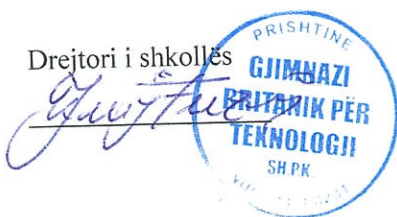 Drejtori i shkollës
PRISHTINË
GJIMNAZI
BRITANIK PËR
TEKNOLOGJI
SH.P.K.